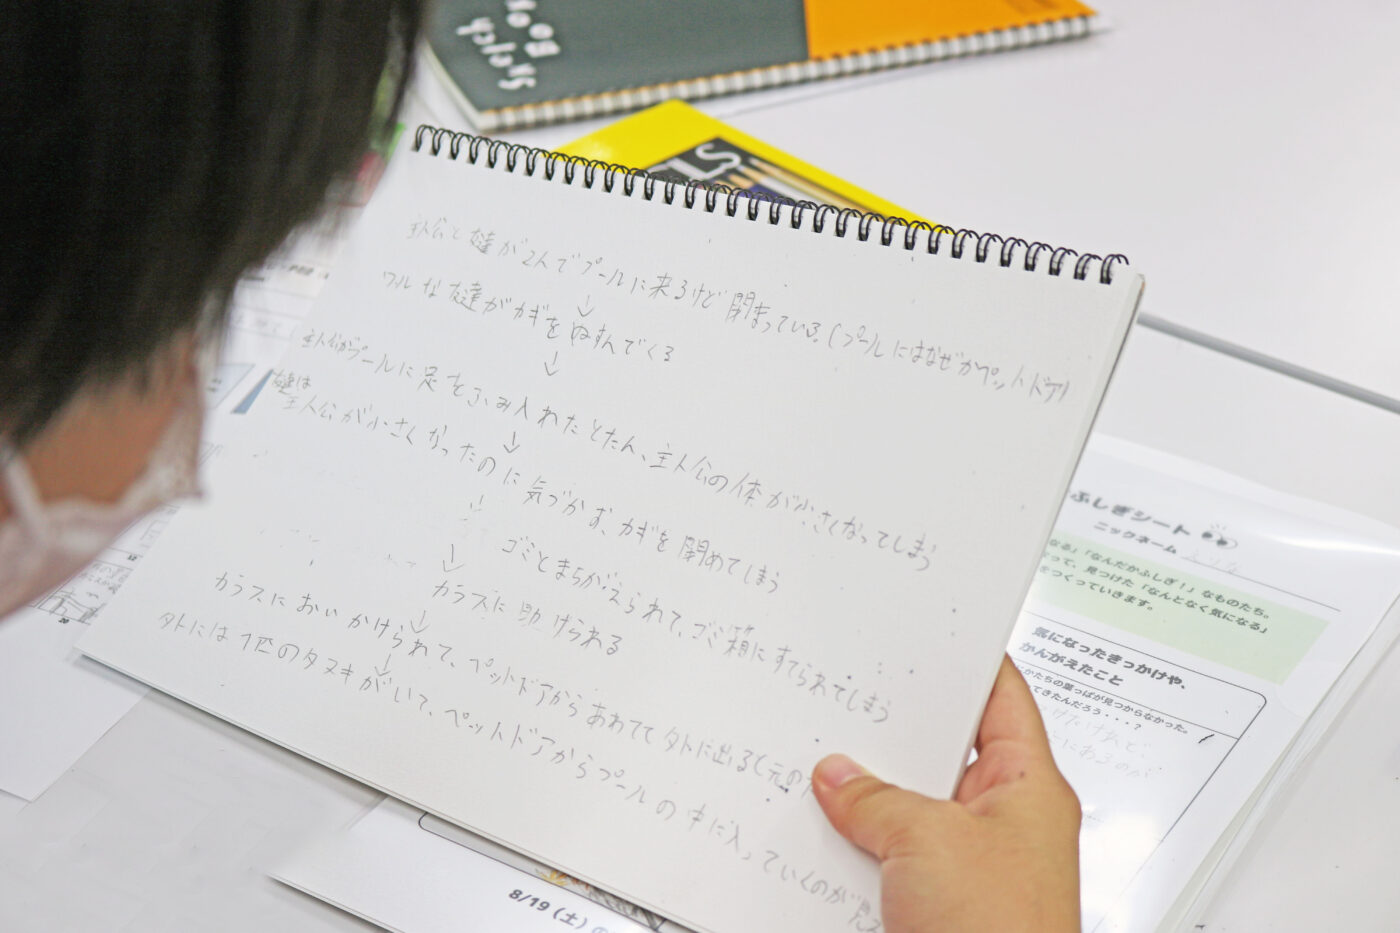 Sketch
Book
主人公と友達が2人でプールに来るけど閉まっている。(プールにはなぜかペットドア)
↓
ワルな友達がカギをぬすんでくる
↓
主人公がプールに足をふみ入れたとたん、主人公の体が小さくなってしまう
↓
友達は
主人公が小さくなったのに気づかず、カギを閉めてしまう
↓
ゴミとまちがえられて、ゴミ箱にすてられてしまう
↓
カラスに助けられる
↓
カラスにおいかけられて、ペットドアからあわてて外に出る(元の
↓
外には1匹のタヌキがいて、ペットドアからプールの中に入っていくのが見え
ふしぎシート
ニックネーム
なる」「なんだかふしぎ！」なものたち。
って、見つけた「なんとなく気になる」
をつくっていきます。
気になったきっかけや、
かんがえたこと
かたちの葉っぱが見つからなかった。
てきたんだろう・・・？
8/19(土)の